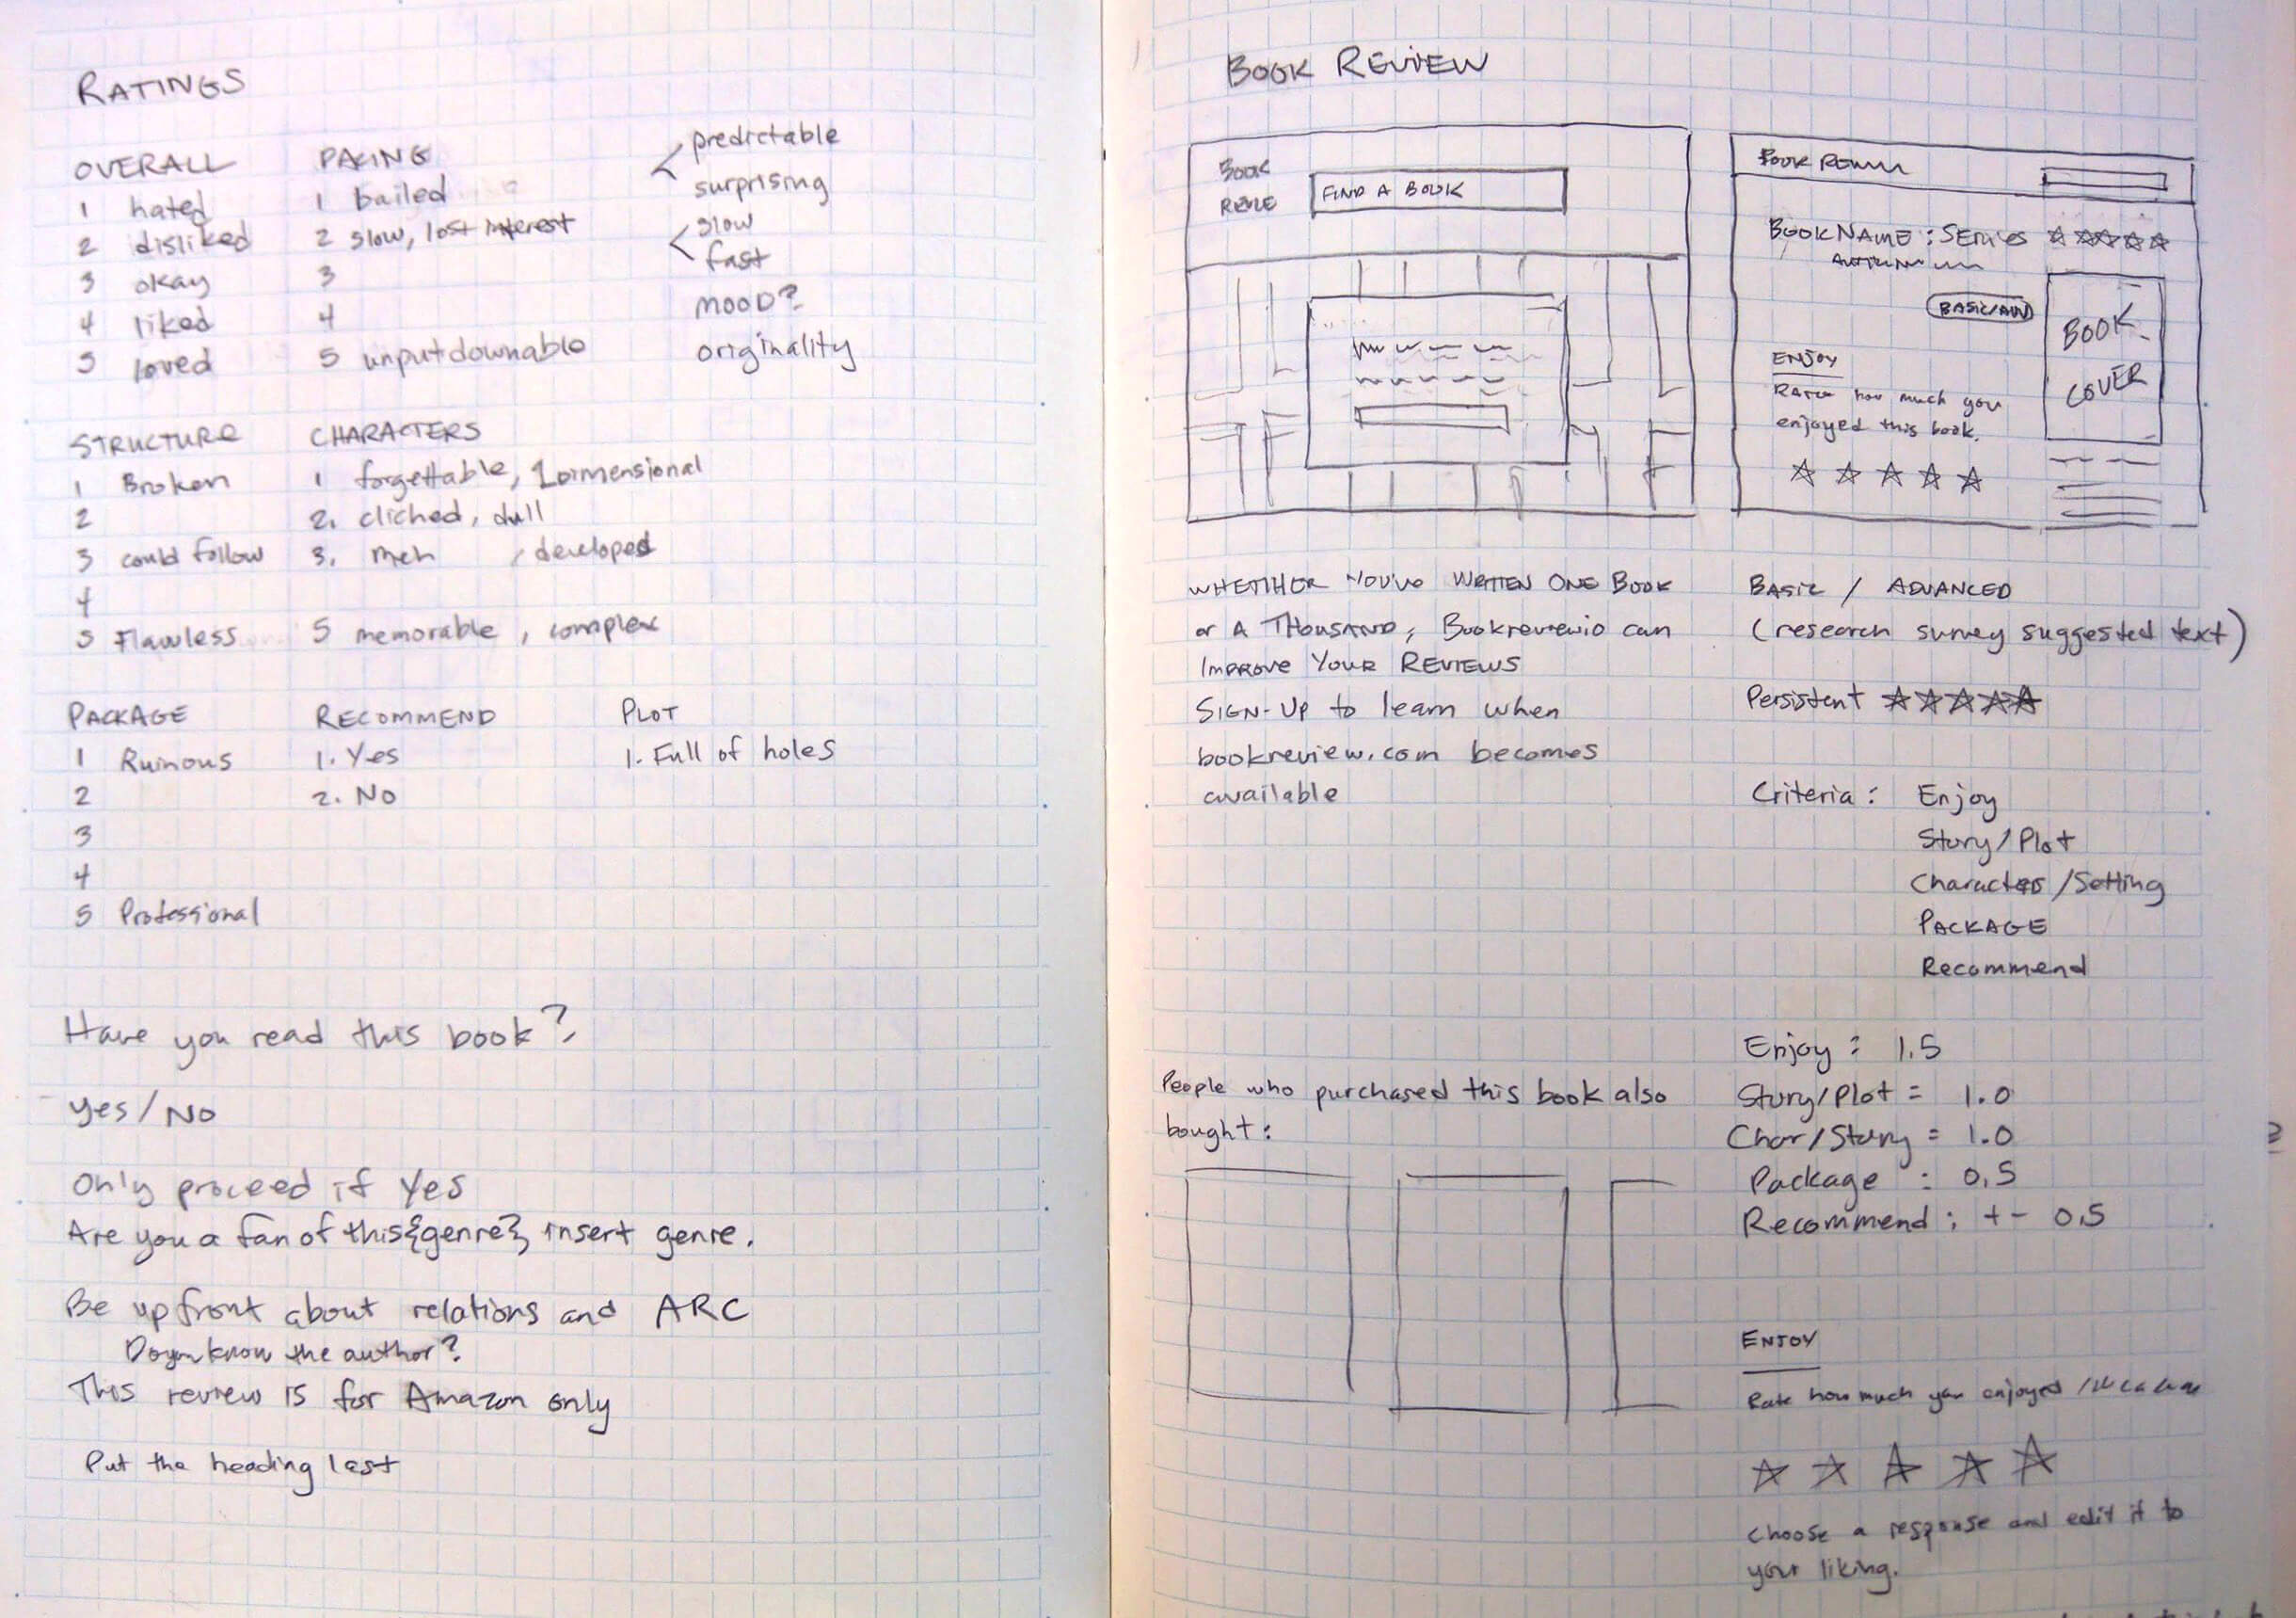 RATINGS
OVERALL
1 hated
2 disliked
3 okay
4 liked
5 loved
PACING
1 bailed
2 slow, lost interest
3
4
5 unputdownable
predictable
surprising
slow
fast
MOOD?
originality
STRUCTURE
1 Broken
2
3 could follow
4
5 Flawless
CHARACTERS
1 forgettable, 1 dimensional
2. cliched, dull
3. meh , developed
5 memorable, complex
PACKAGE
1 Ruinous
2
3
4
5 Professional
RECOMMEND
1. Yes
2. No
PLOT
1. Full of holes
Have you read this book?
yes/No
Only proceed if Yes
Are you a fan of this {genre} insert genre.
Be upfront about relations and ARC
Do you know the author?
This review is for Amazon only
Put the heading last
BOOK REVIEW
BOOK
FIND A BOOK
BOOK
BOOK NAME: SERIES
BASIC/ADV
BOOK
COVER
ENJOY
RATE how much you
enjoyed this book.
WHETHER YOU'VE WRITTEN ONE BOOK
or A THOUSAND, Bookreviewio can
IMPROVE YOUR REVIEWS
SIGN-UP to learn when
bookreview.com becomes
available
BASIC / ADVANCED
(research survey suggested text)
Persistent
Criteria: Enjoy
Story/Plot
Characters/Setting
PACKAGE
Recommend
People who purchased this book also
bought:
Enjoy: 1.5
Story/Plot = 1.0
Char/Story = 1.0
Package : 0.5
Recommend: +- 0.5
ENJOY
Rate how much you enjoyed
choose a response and edit it to
your liking.